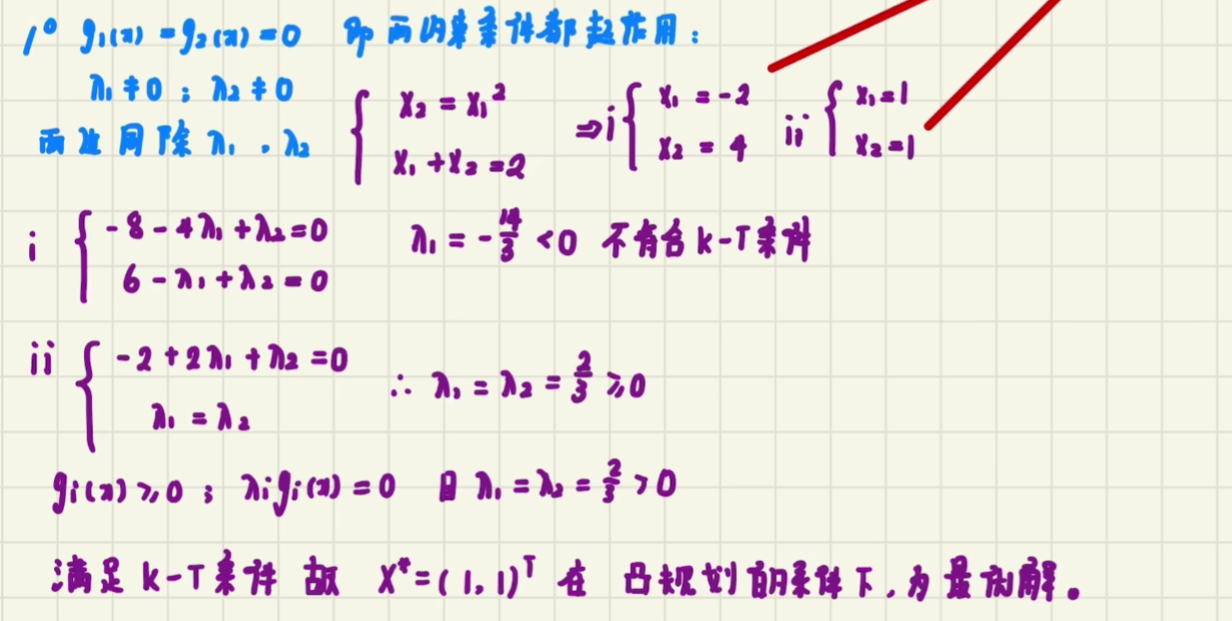 1° g₁(x) = g₂(x) = 0 即两约束条件都起作用：
λ₁ ≠ 0 ; λ₂ ≠ 0
两边同除 λ₁ , λ₂
{ x₂ = x₁²
x₁ + x₂ = 2
⇒ i { x₁ = -2
x₂ = 4
ii { x₁ = 1
x₂ = 1
i { -8 - 4λ₁ + λ₂ = 0
6 - λ₁ + λ₂ = 0
λ₁ = -14/3 < 0 不符合 k-T 条件
ii { -2 + 2λ₁ + λ₂ = 0
λ₁ = λ₂
∴ λ₁ = λ₂ = 2/3 ≥ 0
gᵢ(x) ≥ 0 ; λᵢgᵢ(x) = 0 且 λ₁ = λ₂ = 2/3 > 0
满足 k-T 条件 故 X* = (1, 1)ᵀ 在 凸规划的条件下，为最优解。